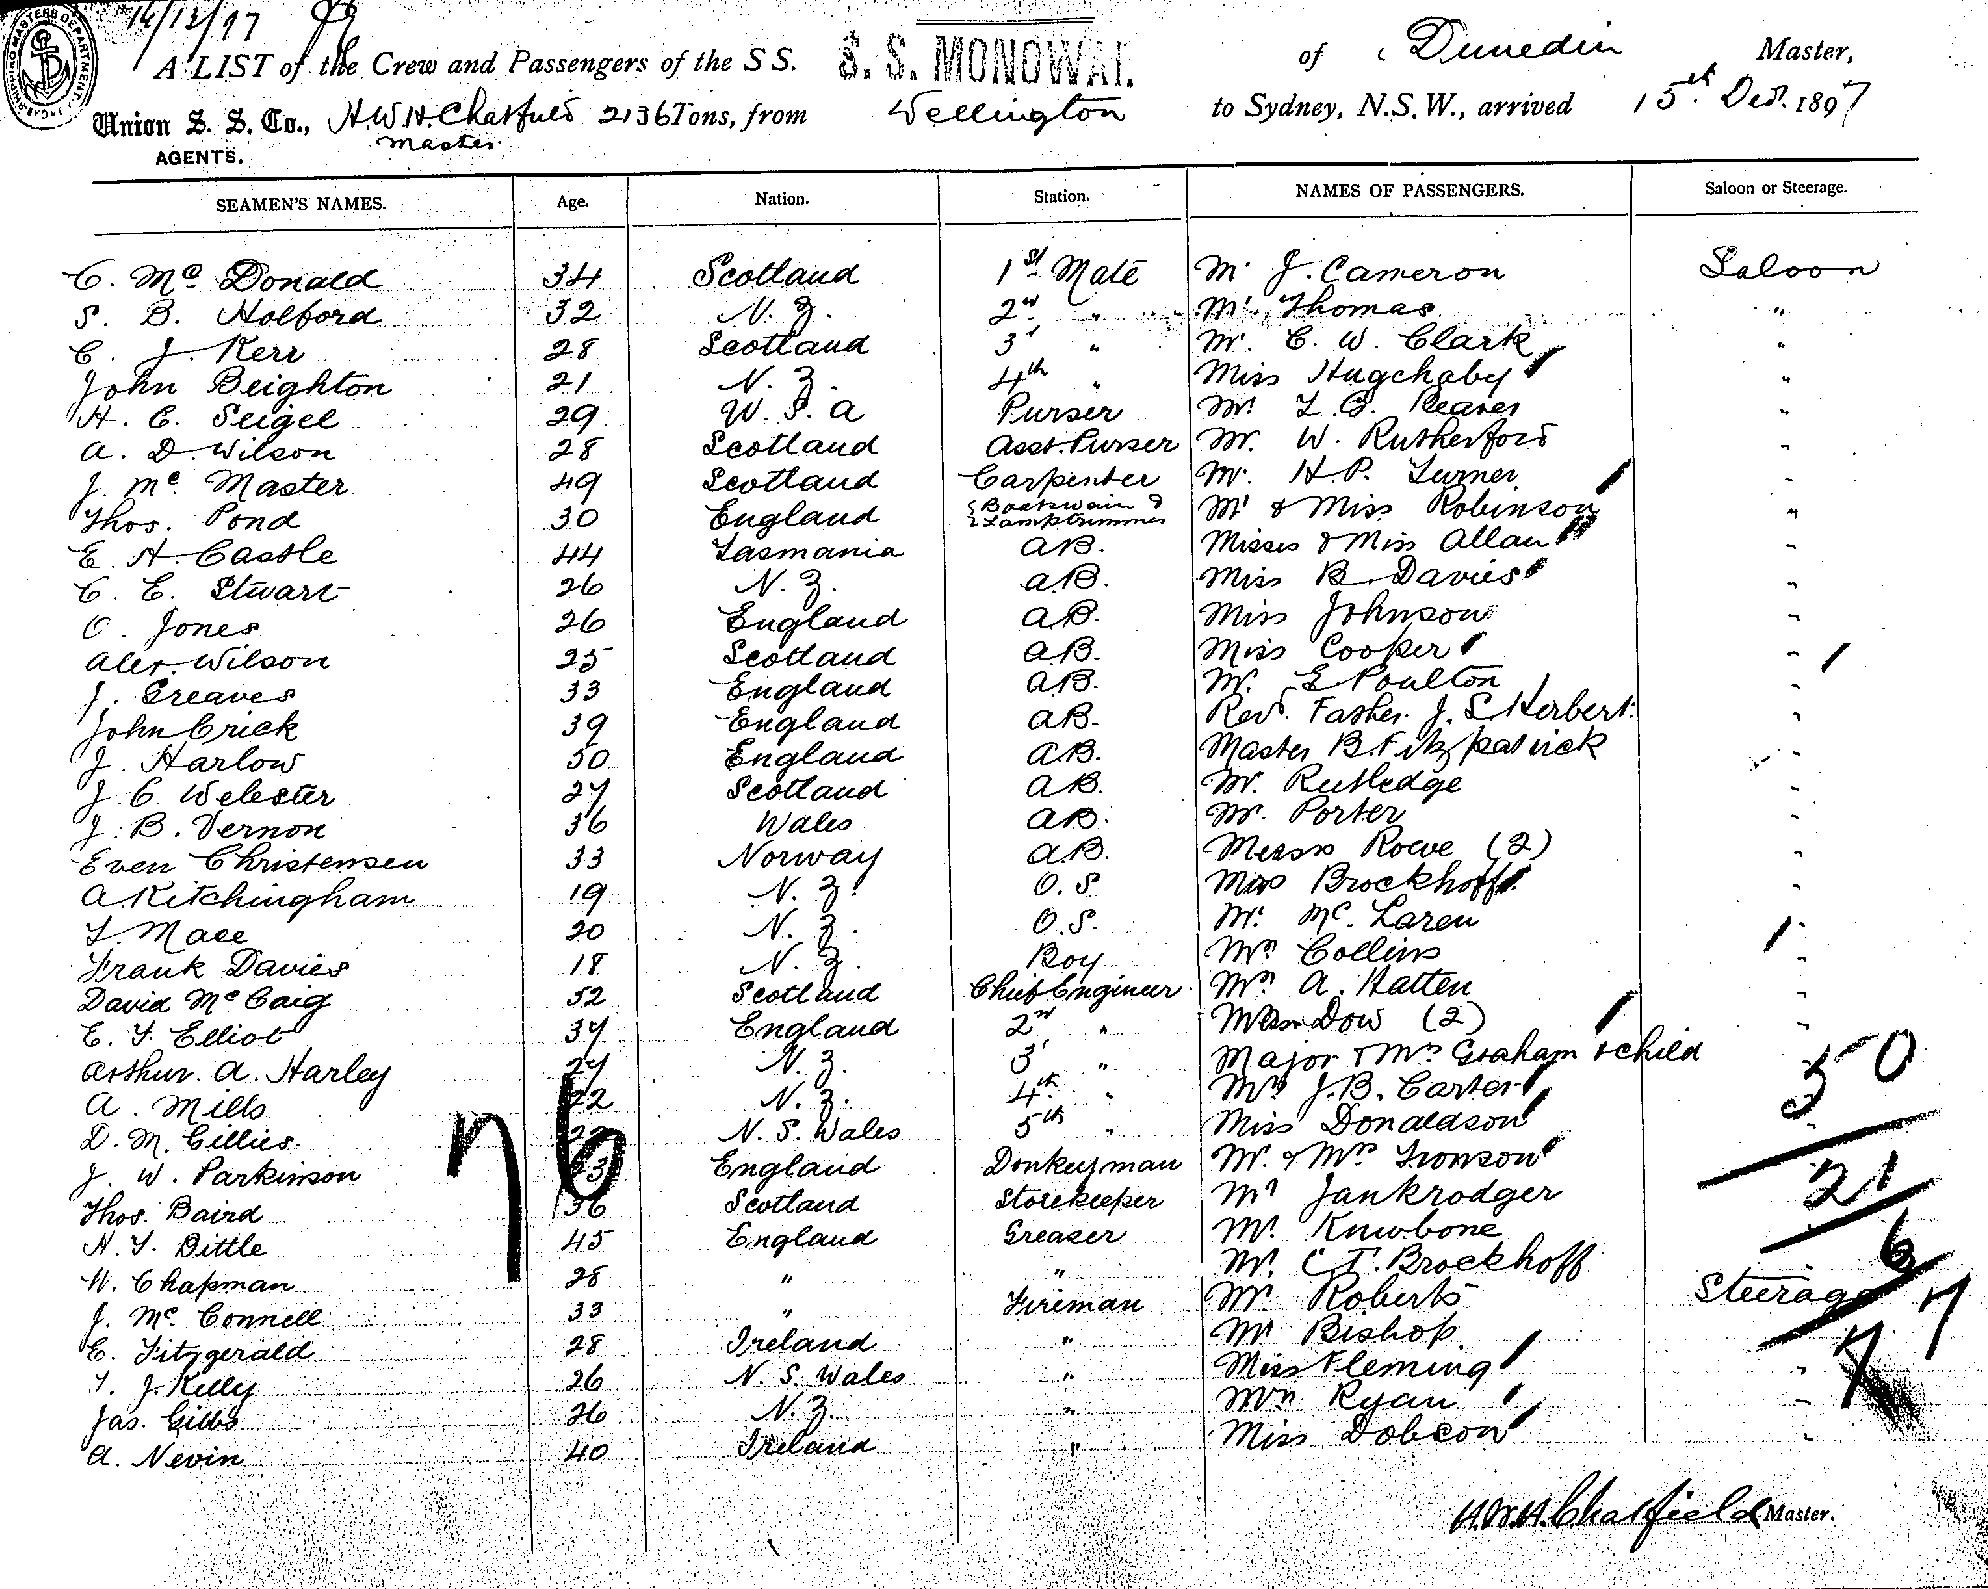 14/12/97
A LIST of the Crew and Passengers of the S S. S. S. MONOWAI. of Dunedin Master,
Union S. S. Co., H.W.H. Chatfield 2136 Tons, from Wellington to Sydney, N.S.W., arrived 15th Decr. 1897
Master
AGENTS.
SEAMEN'S NAMES. Age. Nation. Station. NAMES OF PASSENGERS. Saloon or Steerage.
C. Mc Donald 34 Scotland 1st Mate Mr J. Cameron Saloon
S. B. Holford 32 N. Z. 2nd " Mr Thomas "
C. J. Kerr 28 Scotland 3rd " Mr. C. W. Clark "
John Beighton 21 N. Z. 4th " Miss "
H. C. Seigel 29 U. S. A Purser Mr L. G. Reaves "
A. D. Wilson 28 Scotland Asst. Purser Mr. W. Rutherford "
J. Mc Master 49 Scotland Carpenter Mr. H. P. Turner "
Thos. Pond 30 England Boatswain & Lamptrimmer Mr & Miss Robinson "
E. H. Castle 44 Tasmania A.B. Misses & Miss Allan "
C. E. Stuart 26 N. Z. A.B. Miss B. Davies "
O. Jones 26 England A.B. Miss Johnson "
Alex. Wilson 25 Scotland A.B. Miss Cooper "
J. Greaves 33 England A.B. Mr. E Poulton "
John Crick 39 England A.B. Revd. Father J. L Herbert "
J. Harlow 50 England A.B. Master B Fitzpatrick "
J C Webster 27 Scotland A.B. Mr. Rutledge "
J. B. Vernon 36 Wales A.B. Mr. Porter "
Even Christensen 33 Norway A.B. Messrs Rowe (2) "
A Kitchingham 19 N. Z. O. S. Miss Brockhoff "
T. Mace 20 N. Z. O. S. Mr. Mc. Laren "
Frank Davies 18 N. Z. Boy Mrs Collins "
David McCaig 52 Scotland Chief Engineer Mrs A. Hatten "
E. T. Elliot 37 England 2nd " Dow (2) "
Arthur. A. Harley 27 N. Z. 3rd " Major & Mrs Graham & child
A. Mills 22 N. Z. 4th " Mrs J. B. Carter
D. M. Gillies N. S. Wales 5th " Miss Donaldson
J. W. Parkinson England Donkeyman Mr. & Mrs Tronson
Thos. Baird 36 Scotland Storekeeper Mr Jankrodger
H. T. Bittle 45 England Greaser Mr. Knewbone
W. Chapman 28 " " Mr. C. T. Brockhoff
J. Mc Connell 33 " Fireman Mr Roberts Steerage
C. Fitzgerald 28 Ireland " Mr Bishop
T. J. Kelly 26 N. S. Wales " Miss Fleming "
Jas. Gibbs 26 N. Z. " Mrs Ryan "
A. Nevin 40 Ireland " Miss Dobson "
76
50
21
6
77
H.W.H. Chatfield Master.